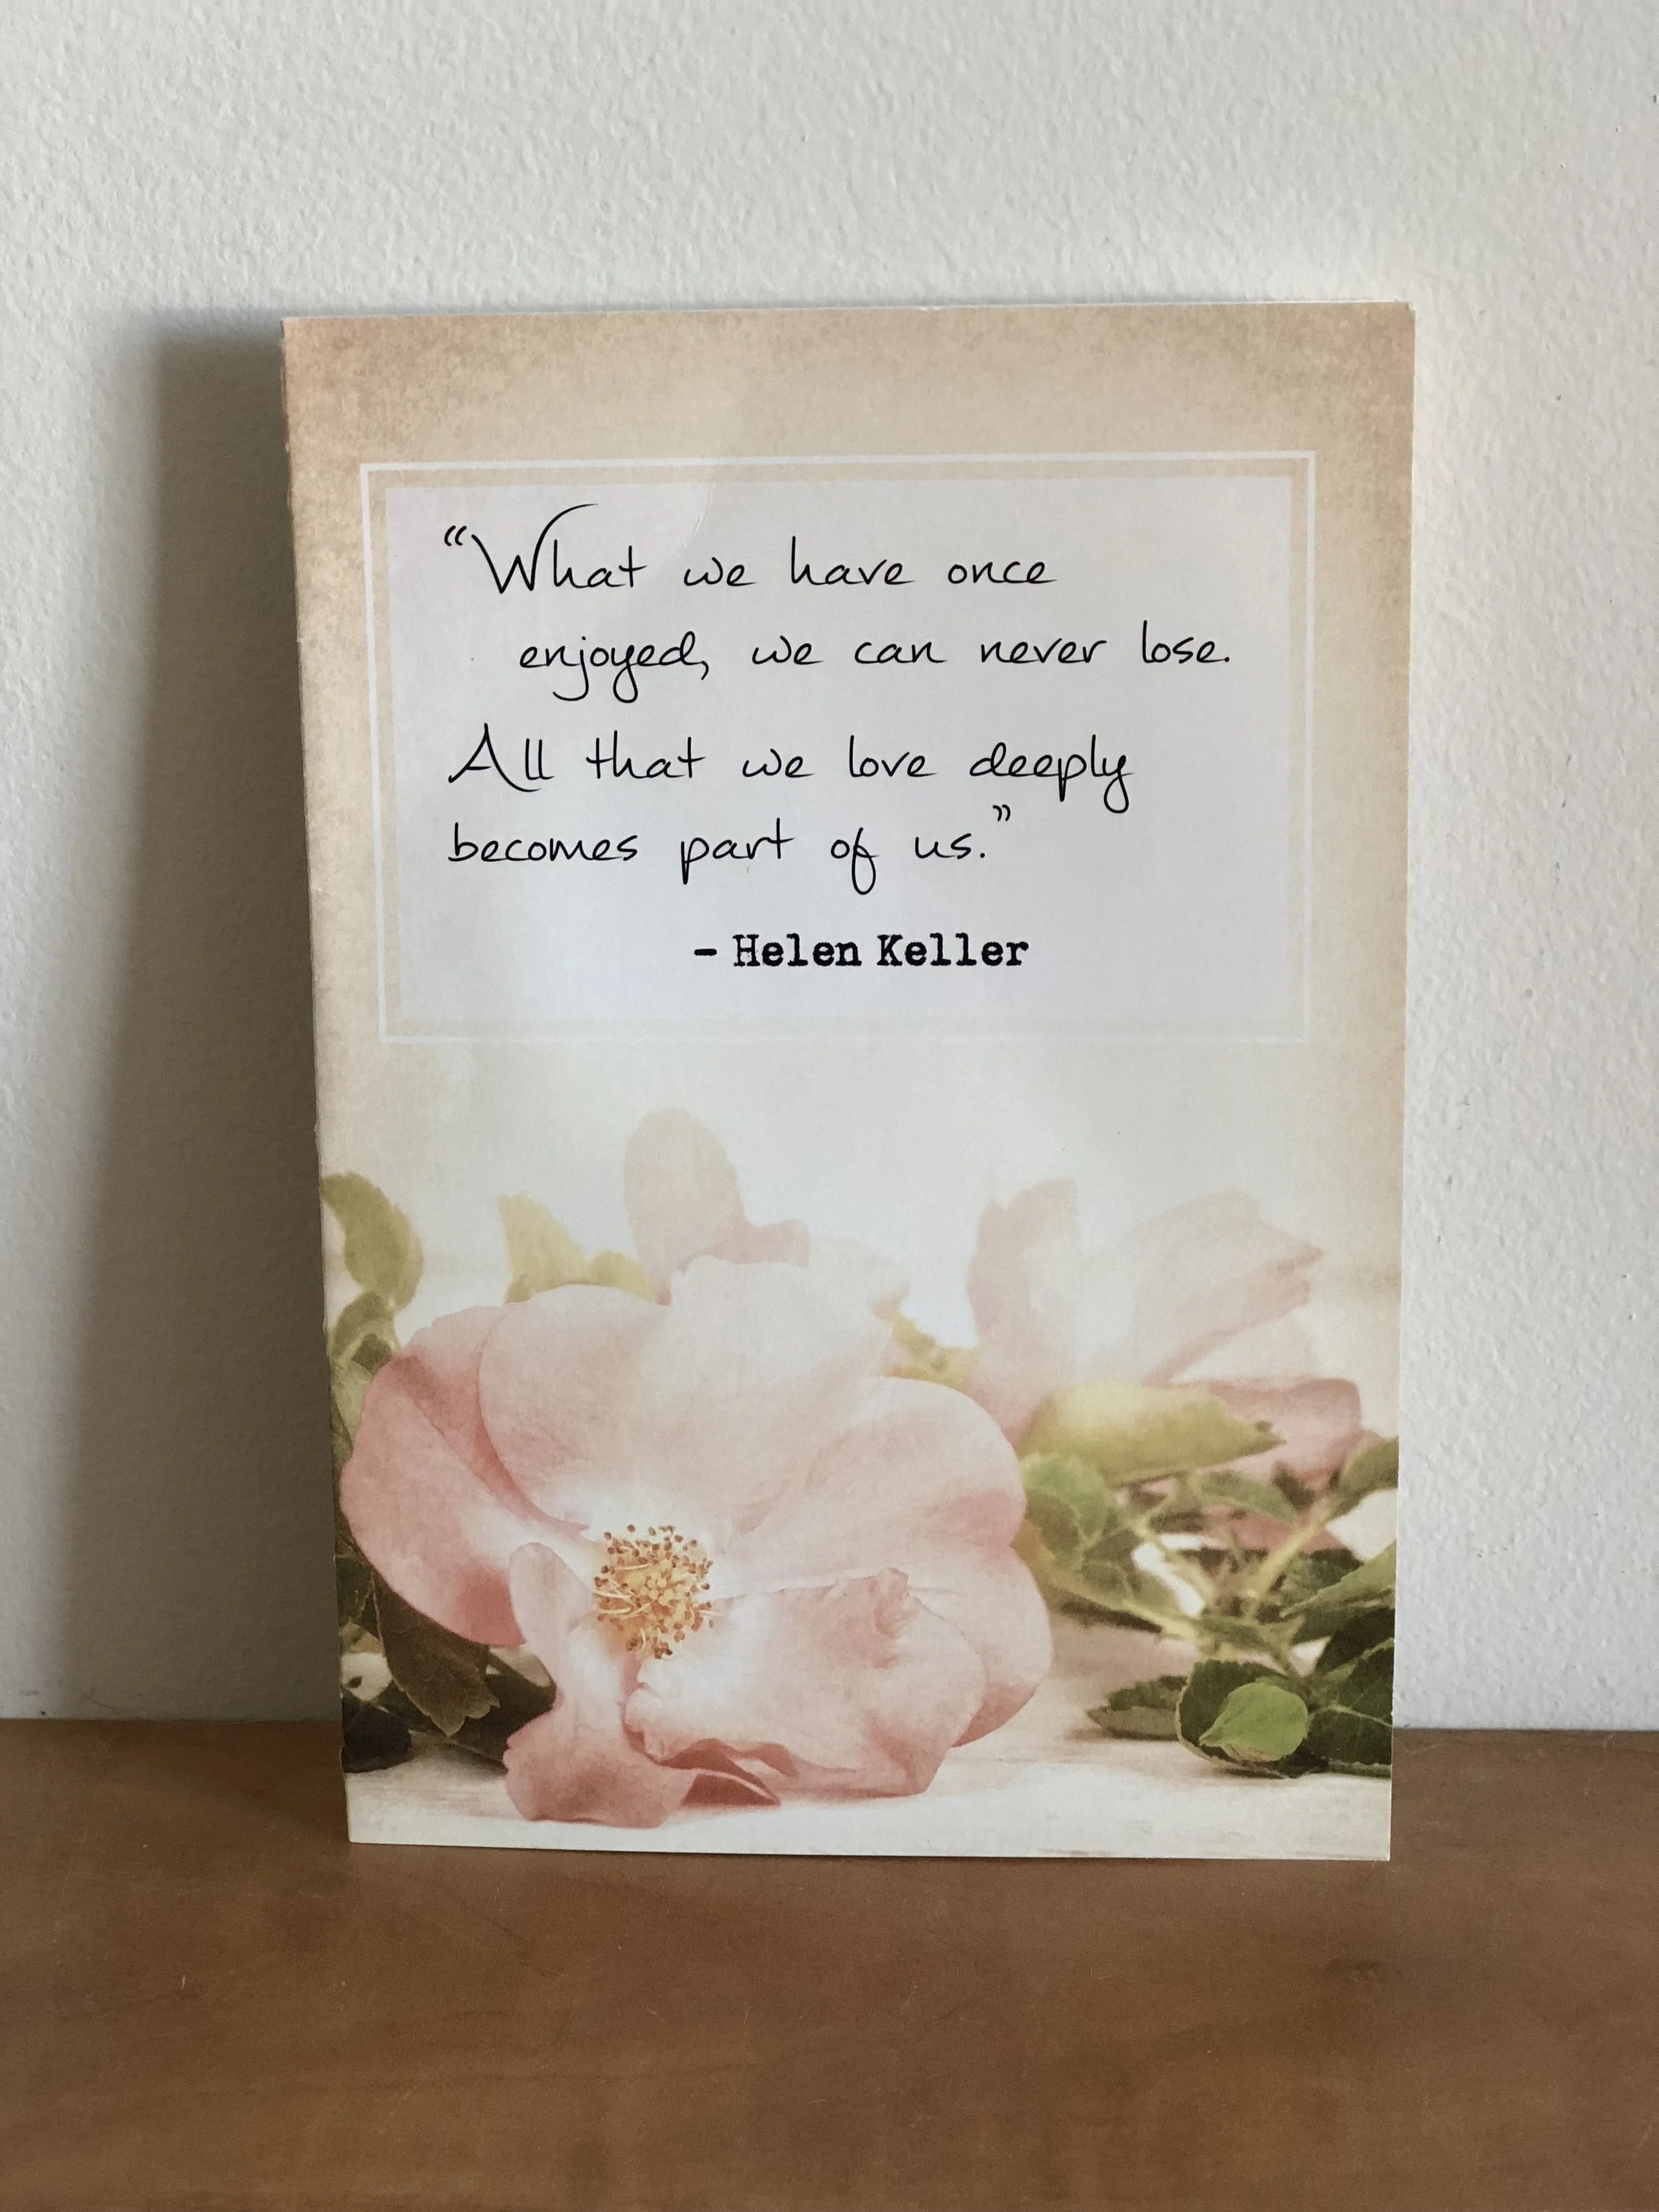 “What we have once
enjoyed, we can never lose.
All that we love deeply
becomes part of us.”
- Helen Keller